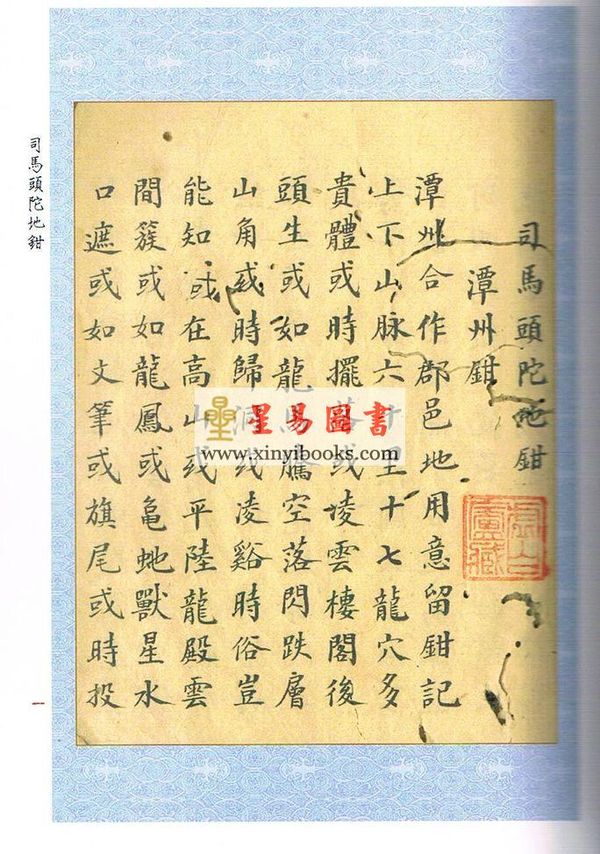 司馬頭陀地鉗
潭州鉗
潭州合作郡邑地用意留鉗記
上下山脉六里十七龍穴多
貴體或時擺落或凌雲樓閣後
頭生或如龍馬騰空落閃跌層
山角或時歸洞或凌谿時俗豈
能知或在高山或平陸龍殿雲
間簇或如龍鳳或亀虵獸星水
口遮或如文筆或旗尾或時投
司馬頭陀地鉗
一
星易圖書
www.xinyibooks.com